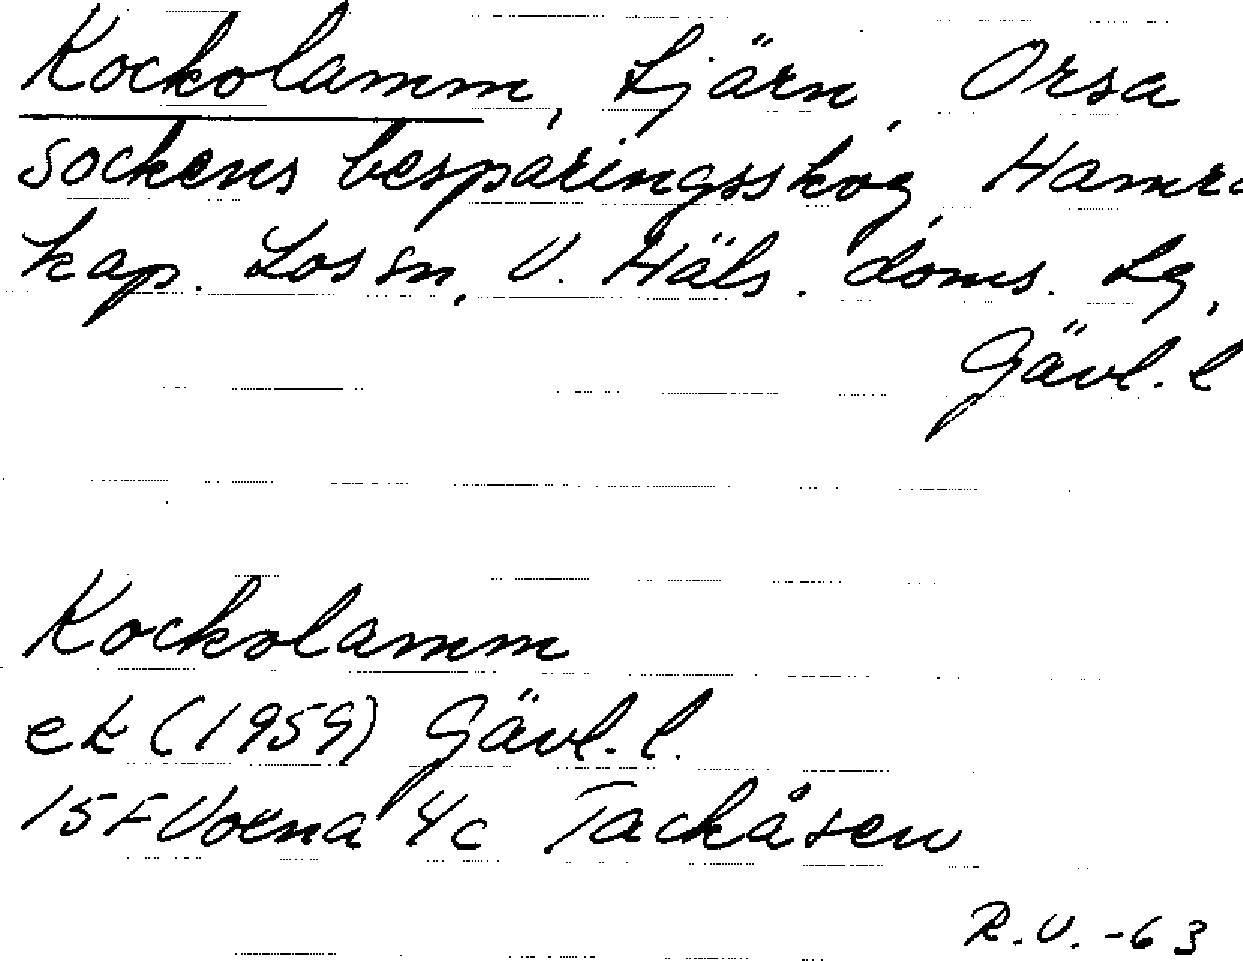 Kockolamm, tjärn, Orsa
sockens besparingsskog, Hamra
kap. Los sn, V. Häls. doms. tg,
Gävl. l
Kockolamm
ek (1959) Gävl. l.
15 F Voxna 4c Tackåsen
R.V. -63